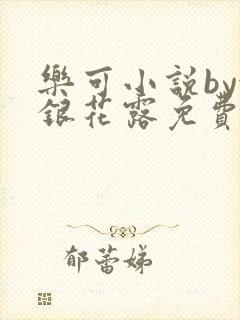 樂可小説by
銀花露免費
郁蕾娣